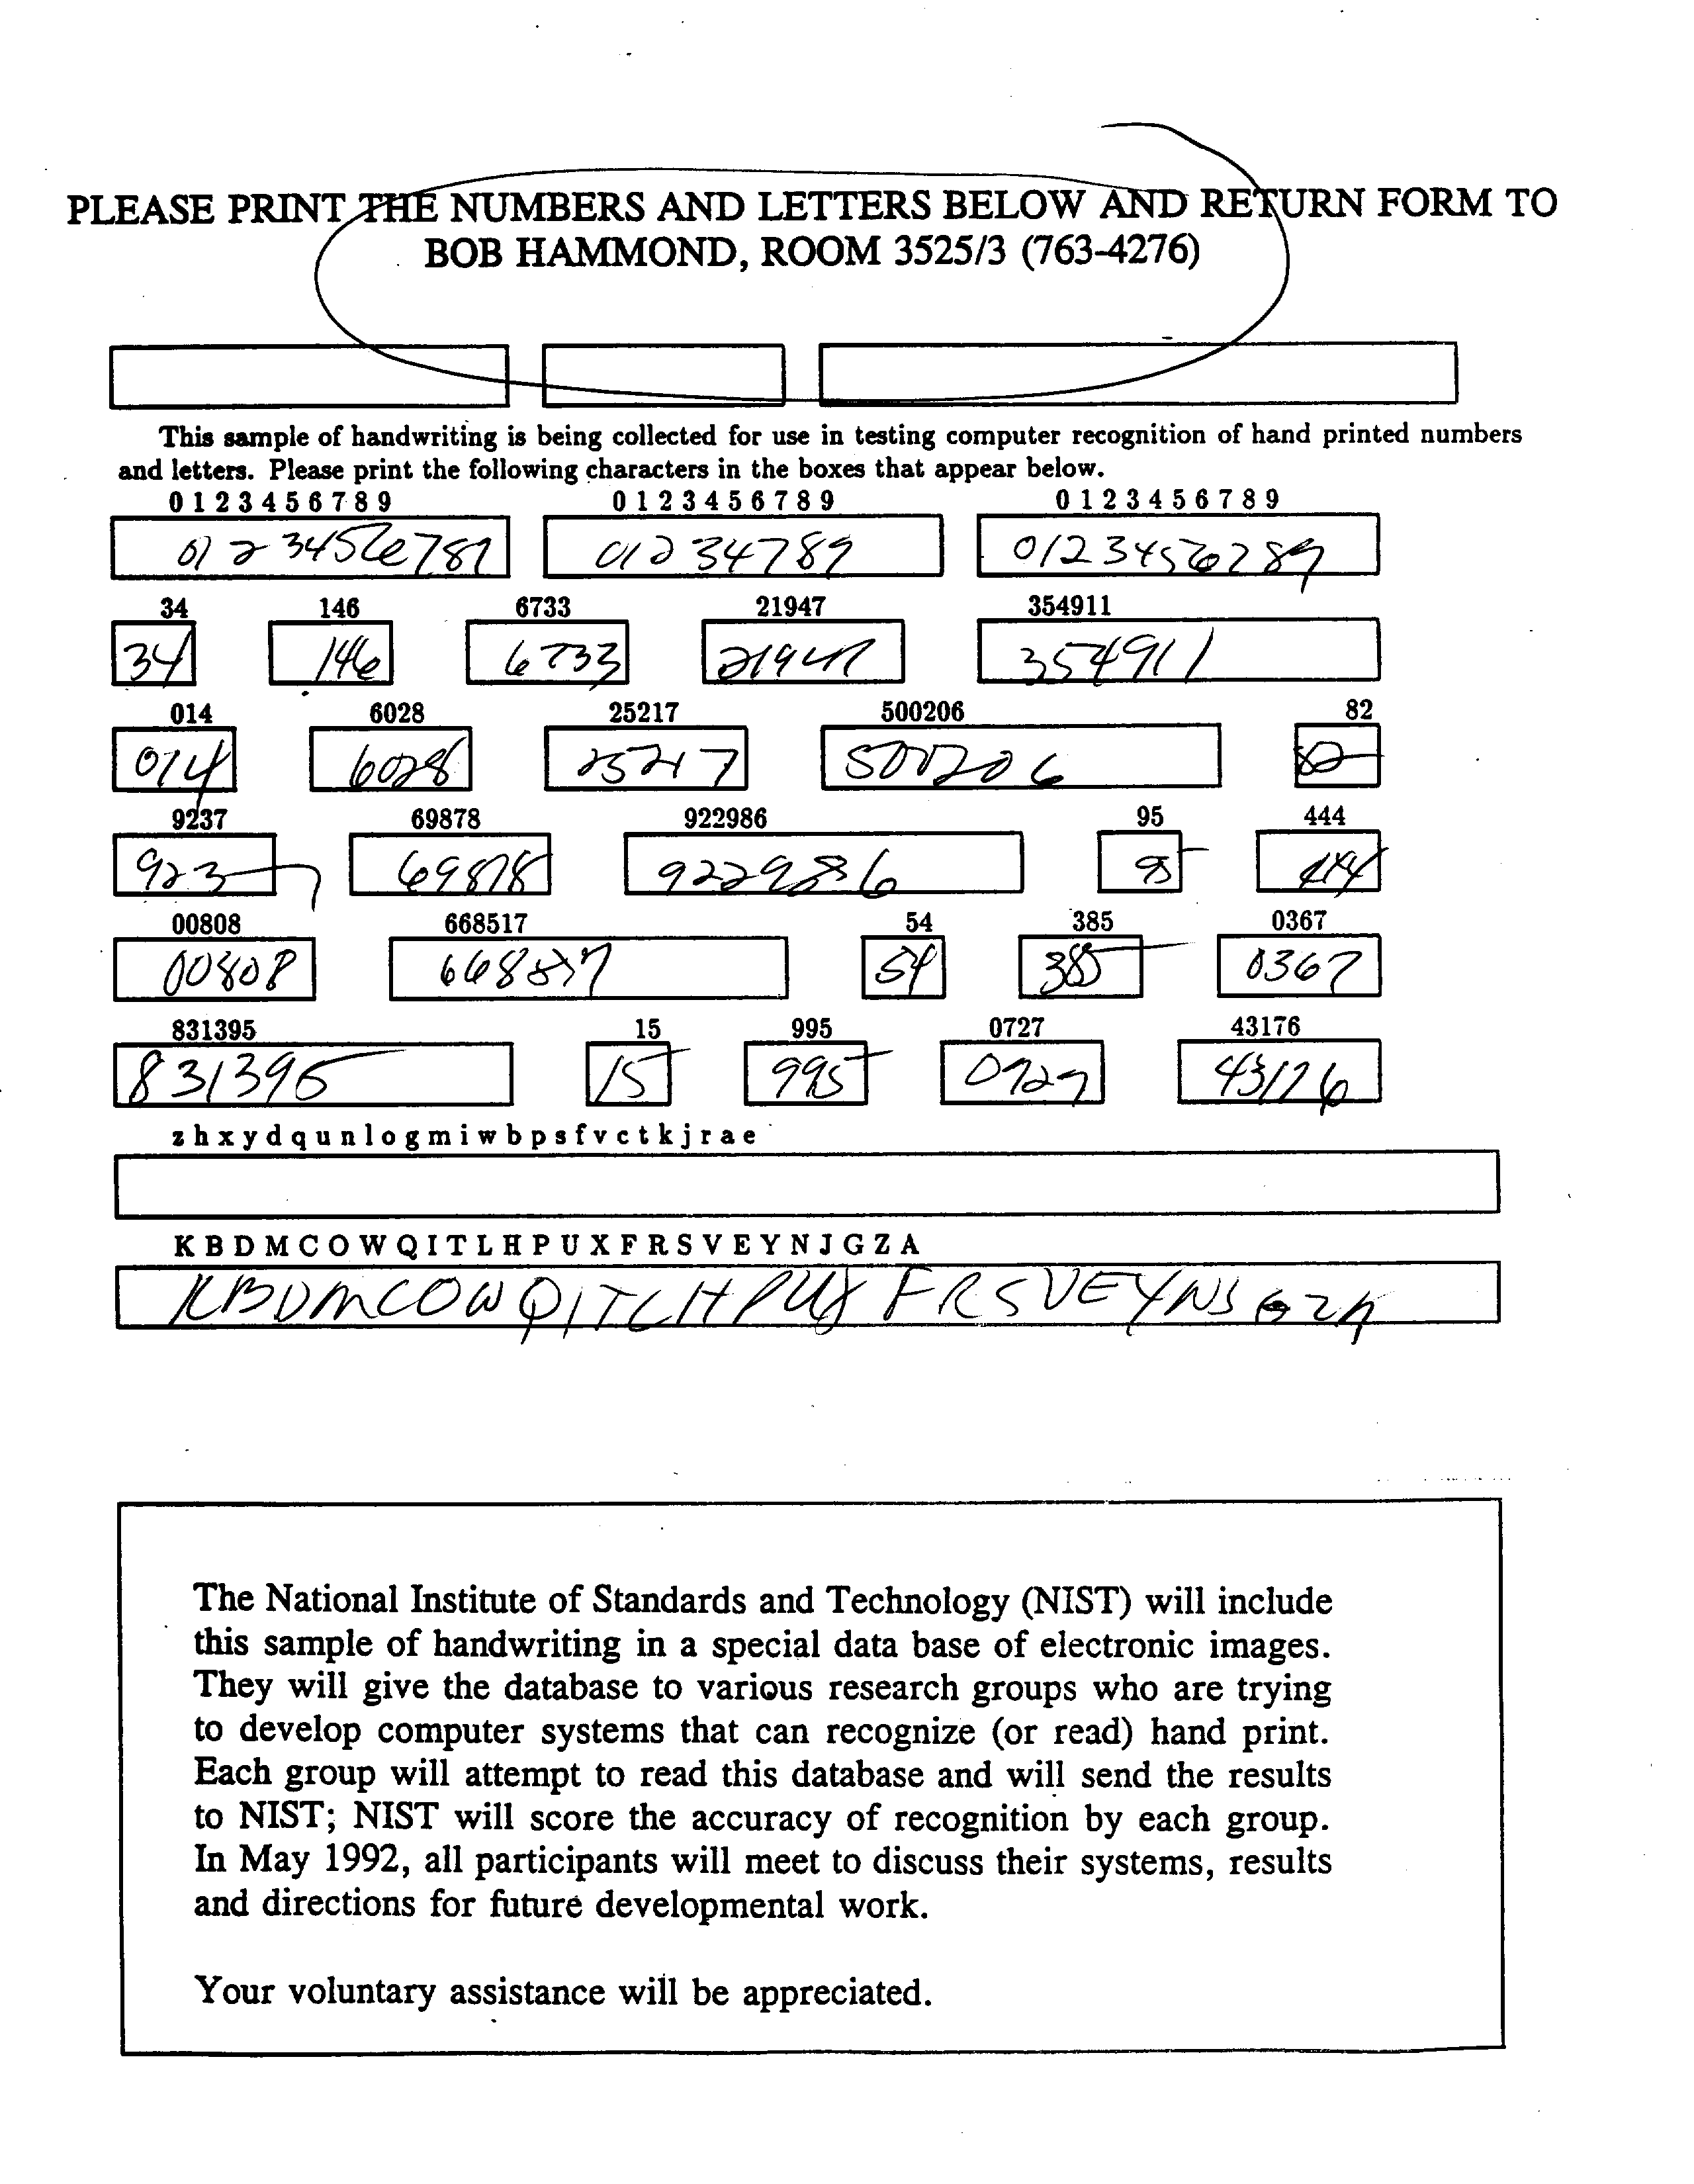 PLEASE PRINT THE NUMBERS AND LETTERS BELOW AND RETURN FORM TO
BOB HAMMOND, ROOM 3525/3 (763-4276)
This sample of handwriting is being collected for use in testing computer recognition of hand printed numbers
and letters. Please print the following characters in the boxes that appear below.
0 1 2 3 4 5 6 7 8 9 0 1 2 3 4 5 6 7 8 9 0 1 2 3 4 5 6 7 8 9
0123456789 01234789 0123456789
34 146 6733 21947 354911
34 146 6733 21947 354911
014 6028 25217 500206 82
014 6028 25217 500206 82
9237 69878 922986 95 444
9237 69878 922986 95 444
00808 668517 54 385 0367
00808 668517 54 385 0367
831395 15 995 0727 43176
831395 15 995 0727 43176
z h x y d q u n l o g m i w b p s f v c t k j r a e
K B D M C O W Q I T L H P U X F R S V E Y N J G Z A
KBDMCOWQITLHPUXFRSVEYNJGZA
The National Institute of Standards and Technology (NIST) will include
this sample of handwriting in a special data base of electronic images.
They will give the database to various research groups who are trying
to develop computer systems that can recognize (or read) hand print.
Each group will attempt to read this database and will send the results
to NIST; NIST will score the accuracy of recognition by each group.
In May 1992, all participants will meet to discuss their systems, results
and directions for future developmental work.
Your voluntary assistance will be appreciated.